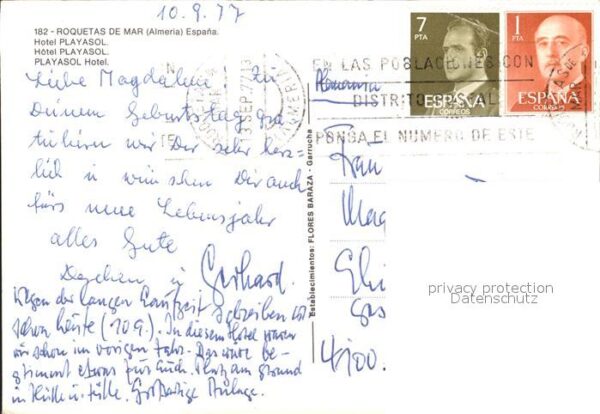 10.9.77
182 - ROQUETAS DE MAR (Almeria) España.
Hotel PLAYASOL.
Hôtel PLAYASOL.
PLAYASOL Hotel.
7
PTA
ESPAÑA
CORREOS
1
PTA
ESPAÑA
CORREOS
EN LAS POBLACIONES CON
DISTRITO POSTAL
PONGA EL NUMERO DE ESTE
SEP.77
ALMERIA
Liebe Magdalene! Zu
Deinem Geburtstag gra
tulieren wir Dir sehr herz-
lich u wünschen Dir auch
fürs neue Lebensjahr
alles Gute
u Gerhard.
Wegen der langen Laufzeit schreiben wir
schon heute (10.9.). In diesem Hotel waren
wir schon im vorigen Jahr. Das wäre be-
stimmt etwas für Euch. Platz am Strand
in Hülle u. Fülle. Großartige Anlage.
Establecimientos: FLORES BARAZA - Garrucha
Alemania
Frau
Mag
4100
privacy protection
Datenschutz